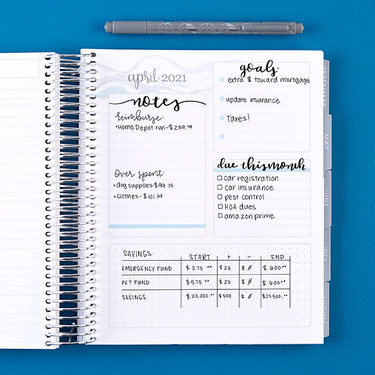 april 2021
notes
reimburse:
•Home Depot run-
Over spent
•dog supplies-
•clothes-
goals
extra $ toward mortgage
update insurance
Taxes!
due this month
car registration
car insurance
pest control
HOA dues
amazon prime
SAVINGS START + - END
EMERGENCY FUND $575.00 $25 $0 $600.00
PET FUND $575 $25 $0 $600.00
SAVINGS $500 $0
MAY